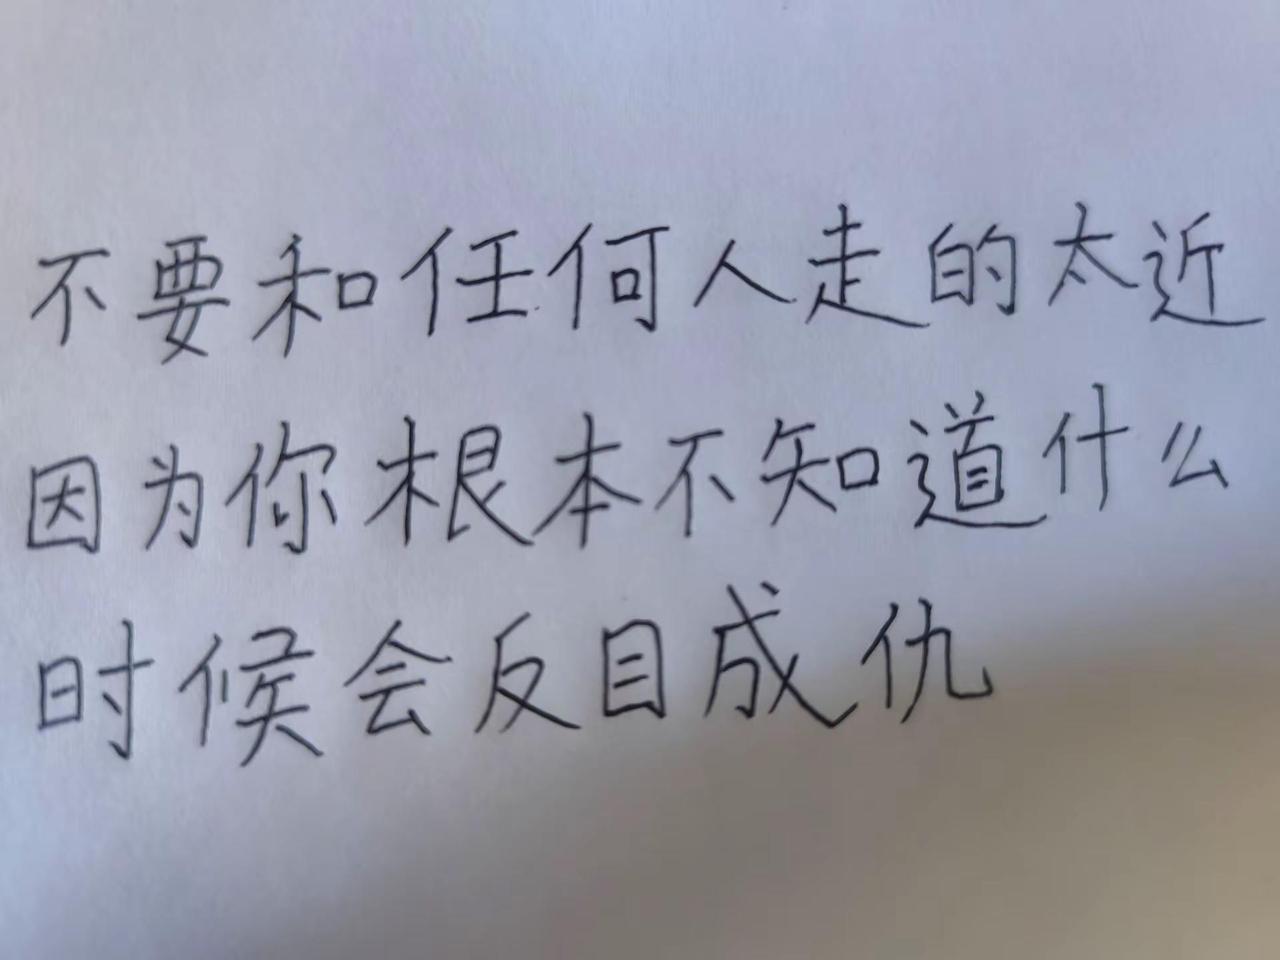 不要和任何人走的太近
因为你根本不知道什么
时候会反目成仇